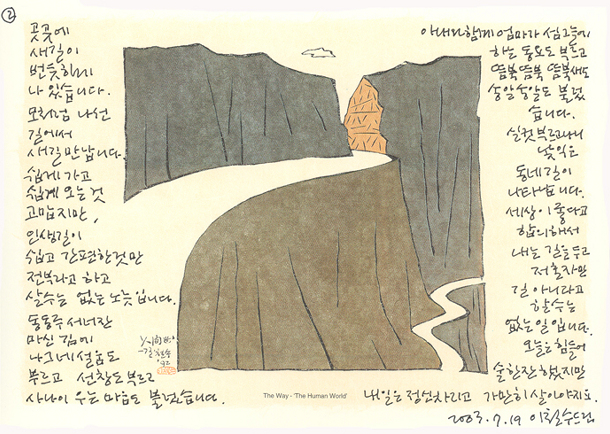 ②
곳곳에
새길이
번듯하게
나 있습니다.
모처럼 나선
길에서
새길 만납니다.
쉽게 가고
쉽게 오는 것
고맙지만,
인생길이
쉽고 간편한것만
전부라고 하고
살수는 없는 노릇입니다.
동동주 서너잔
마신 김에
나그네 설움도
부르고 선창도 부르고
사나이 우는 마음도 불렀습니다.
아내와 함께 엄마가 섬그늘에
하는 동요도 부르고
뜸북뜸북 뜸북새도
송알송알도 불렀
습니다.
실컷 부르고나니
낯익은
동네길이
나타납니다.
세상이 좋다고
합의해서
내는 길을 두고
저 혼자만
길 아니라고
할수는
없는 일입니다.
오늘은 힘들어
술한잔 했지만
내일은 정신차리고 가만히 살아야지요.
2003.7.19 이철수드림
The Way - 'The Human World'